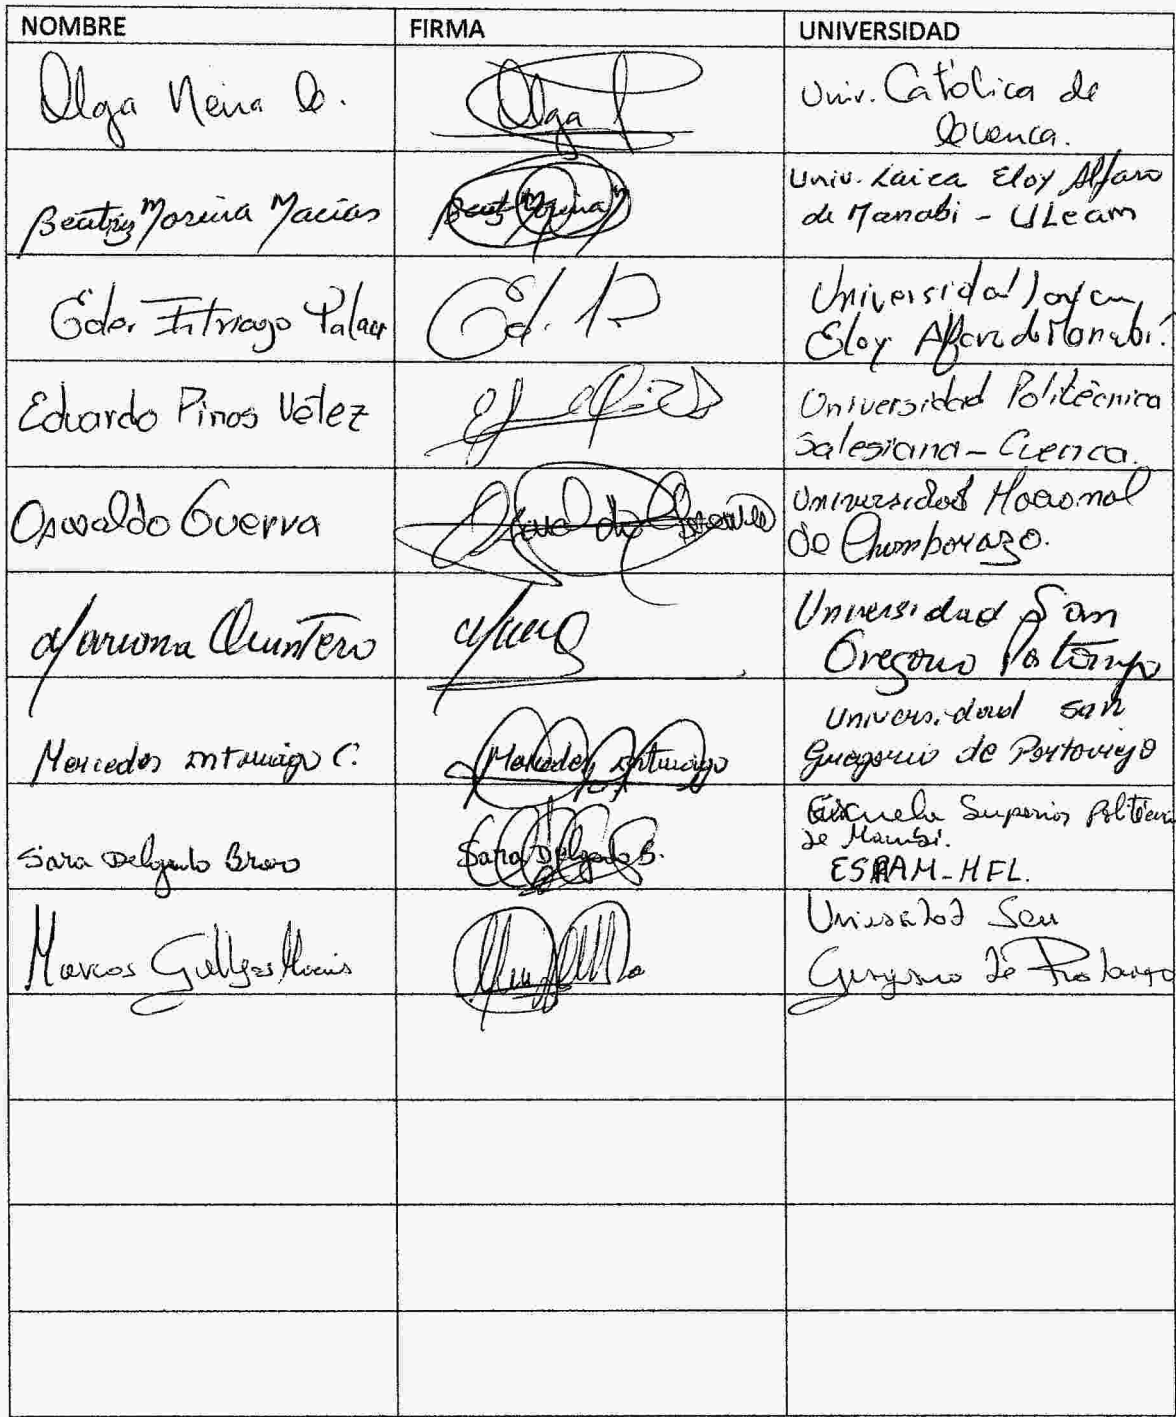 NOMBRE FIRMA UNIVERSIDAD
Olga Neira C. Olga Univ. Católica de
Cuenca.
Beatriz Moreira Macías Beatriz Moreira M Univ. Laica Eloy Alfaro
de Manabí - ULeam
Eder Intriago Palac Ed. Universidad Layca,
Eloy Alfaro de Manabí.
Eduardo Pinos Vélez Universidad Politécnica
Salesiana - Cuenca.
Oswaldo Guerra Oswaldo Universidad Nacional
de Chimborazo.
Mariana Quintero Universidad San
Gregorio Portoviejo
Mercedes Intriago C. Mercedes Intriago Universidad San
Gregorio de Portoviejo
Sara Delgado Bravo Sara Delgado B. Escuela Superior Politécni
de Manabí.
ESPAM-MFL.
Marcos Universidad San
Gregorio de Portoviejo